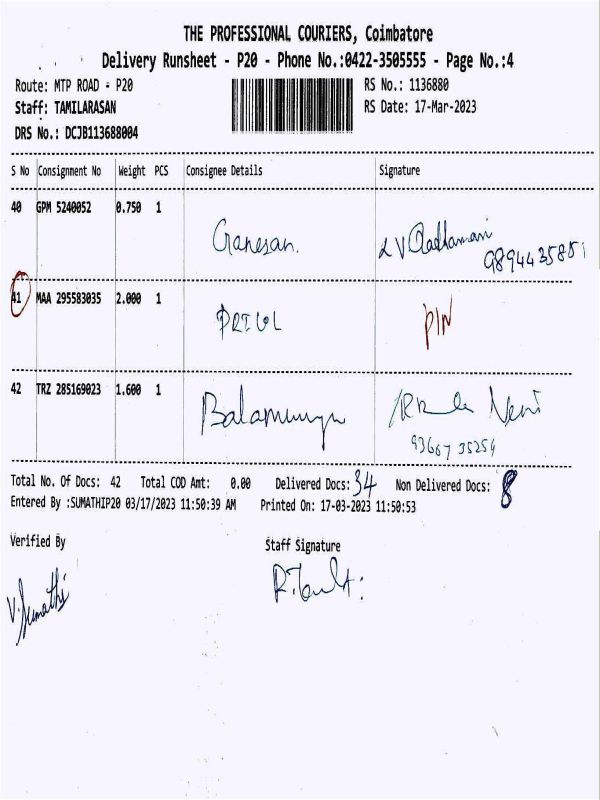 THE PROFESSIONAL COURIERS, Coimbatore
Delivery Runsheet - P20 - Phone No.:0422-3505555 - Page No.:4
Route: MTP ROAD - P20 RS No.: 1136880
Staff: TAMILARASAN RS Date: 17-Mar-2023
DRS No.: DCJB113688004
S No Consignment No Weight PCS Consignee Details Signature
40 GPM 5240052 0.750 1 Ganesan.
9894435851
41 MAA 295583035 2.000 1 PIN
42 TRZ 285169023 1.600 1
93667 35254
Total No. Of Docs: 42 Total COD Amt: 0.00 Delivered Docs: 34 Non Delivered Docs: 8
Entered By :SUMATHIP20 03/17/2023 11:50:39 AM Printed On: 17-03-2023 11:50:53
Verified By Staff Signature
V. Sumathi